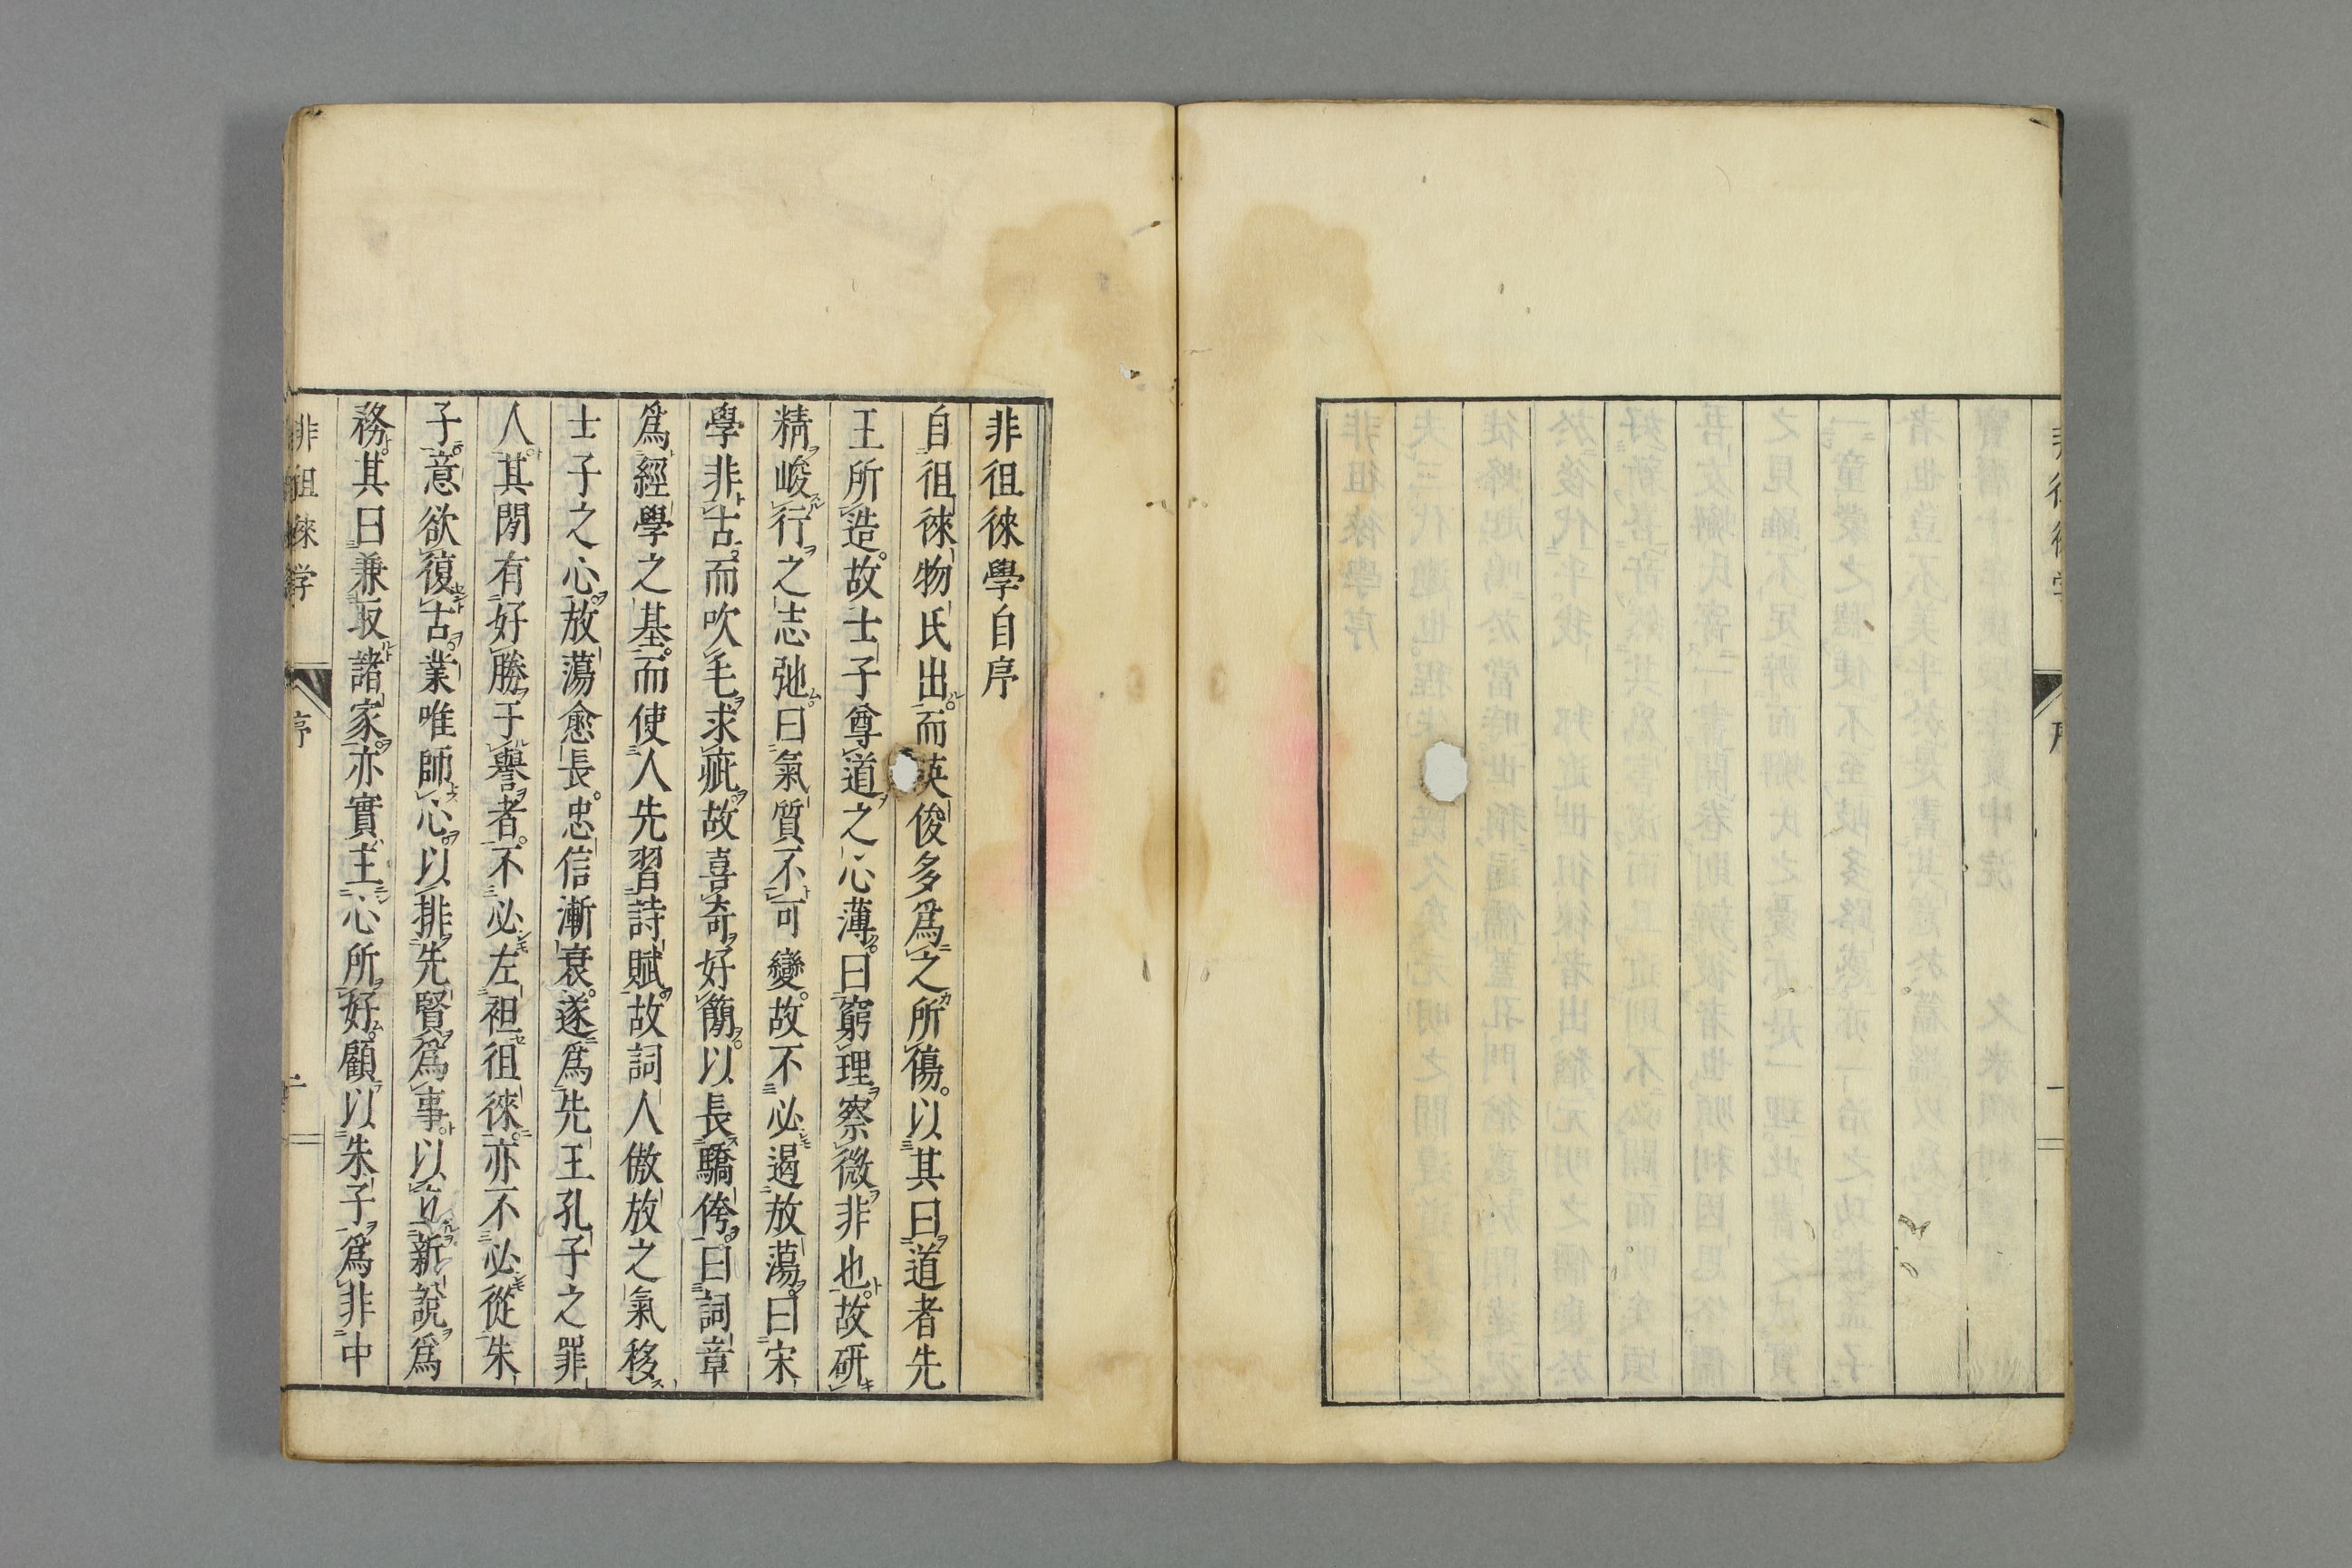 非徂徠學自序
自徂徠物氏出而英俊多爲之所傷以其曰道者先
王所造故士子尊道之心薄曰窮理察微非也故研
精峻行之志弛曰氣質不可變故不必遏放蕩曰宋
學非古而吹毛求疵故喜奇好簡以長驕侉曰詞章
爲經學之基而使人先習詩賦故詞人傲放之氣移
士子之心放蕩愈長忠信漸衰遂爲先王孔子之罪
人其間有好勝于譽者不必左袒徂徠亦不必從朱
子意欲復古業唯師心以排先賢爲事以立新說爲
務其曰兼取諸家亦實主心所好顧以朱子爲非中
非徂徠学 序 二